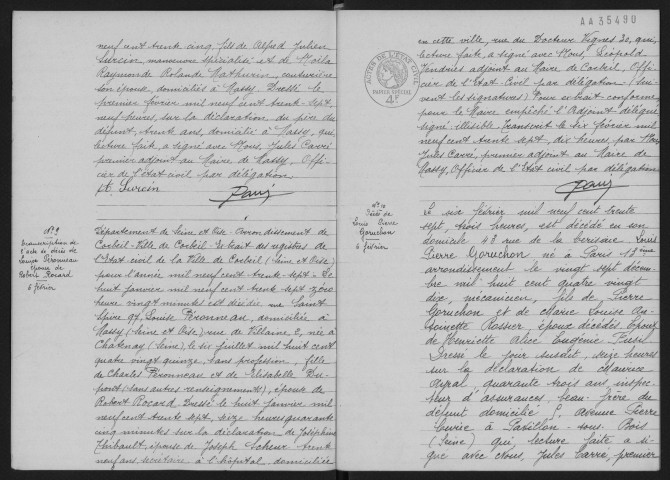 neuf cent trente cinq, fils de Alfred Julien
Surcin, manœuvre spécialisé et de
Raymonde Rolande Mathurin, couturière
son épouse, domiciliés à Massy. Dressé le
premier février mil neuf cent trente-sept
neuf heures, sur la déclaration du père du
défunt, trente ans, domicilié à Massy, qui,
lecture faite, a signé avec Nous, Jules Carré
premier adjoint au Maire de Massy, Offi-
cier de l'état civil par délégation.
A. Surcin
N° 9
transcription de
l'acte de décès de
Louise Péronneau
épouse de
Robert Rocard
6 février
Département de Seine et Oise - Arrondissement de
Corbeil - Ville de Corbeil - Extrait des registres de
l'Etat civil de la Ville de Corbeil (Seine et Oise)
pour l'année mil neuf cent trente-sept - Le
huit janvier mil neuf cent trente-sept
heure vingt minutes est décédée rue Saint
Spire 97, Louise Péronneau, domiciliée à
Massy (Seine et Oise) rue de Villaine 2, née à
Chatenay (Seine), le six juillet mil huit cent
quatre vingt quinze, sans profession, fille
de Charles Péronneau et de Elisabelle Du-
pont (sans autres renseignements), épouse de
Robert Rocard. Dressé le huit janvier mil
neuf cent trente sept, seize heures quarante
cinq minutes sur la déclaration de Joséphine
Thibault, épouse de Joseph Scheur trente
neuf ans, secrétaire à l'hôpital, domiciliée
AA35490
ACTES DE L'ÉTAT CIVIL
PAPIER SPÉCIAL
4F
en cette ville, rue du Docteur Vignes 20, qui,
lecture faite, a signé avec Nous, Léopold
Vendries adjoint au Maire de Corbeil, Offi-
cier de l'Etat-Civil par délégation (sui-
vent les signatures) Pour extrait conforme
pour le Maire empêché l'Adjoint délégué
signé illisible. Transcrit le six février mil
neuf cent trente sept, dix heures, par Nous
Jules Carré, premier adjoint au Maire de
Massy, Officier de l'état civil par délégation
N° 10
Décès de
Louis Pierre
Goruchon
6 février
Le six février mil neuf cent trente
sept, trois heures, est décédé en son
domicile 43 rue de la Louis
Pierre Goruchon né à Paris 13ème
arrondissement le vingt sept décem-
bre mil huit cent quatre vingt
dix, mécanicien, fils de Pierre
Goruchon et de Marie Louise An-
toinette Rosser, époux décédés. Epoux
de Henriette Alice Eugénie Fusil
Dressé le jour susdit, seize heures
sur la déclaration de Maurice
quarante trois ans, inspec-
teur d'assurances beau-frère du
défunt domicilié 5, avenue Pierre
Curie à Pavillon-sous-Bois
(Seine) qui, lecture faite a si-
gné avec Nous, Jules Carré, premier